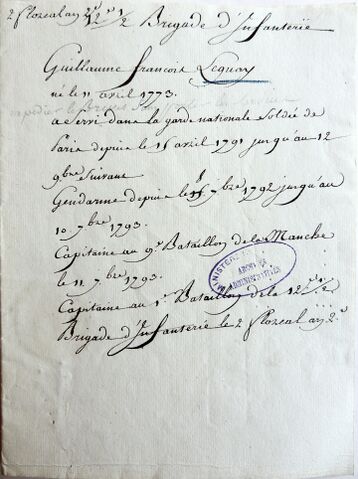 2 floreal an 2e 12e 1/2 Brigade d'Infanterie
Guillaume francois Lequoy
né le 11 avril 1773.
expedier le Brevet
a servi dans la garde nationale Soldée de
Paris depuis le 15 avril 1791 jusqu'au 12
9bre Suivant
Gendarme depuis le 1 7bre 1792 jusqu'au
10. 7bre 1793.
Capitaine au 9e Bataillon de la Manche
le 11 7bre 1793.
Capitaine au 1er Bataillon de la 12e 1/2
Brigade d'Infanterie le 2 floreal an 2e
MINISTÈRE
ARCHIVES
ADMINISTRATIVES